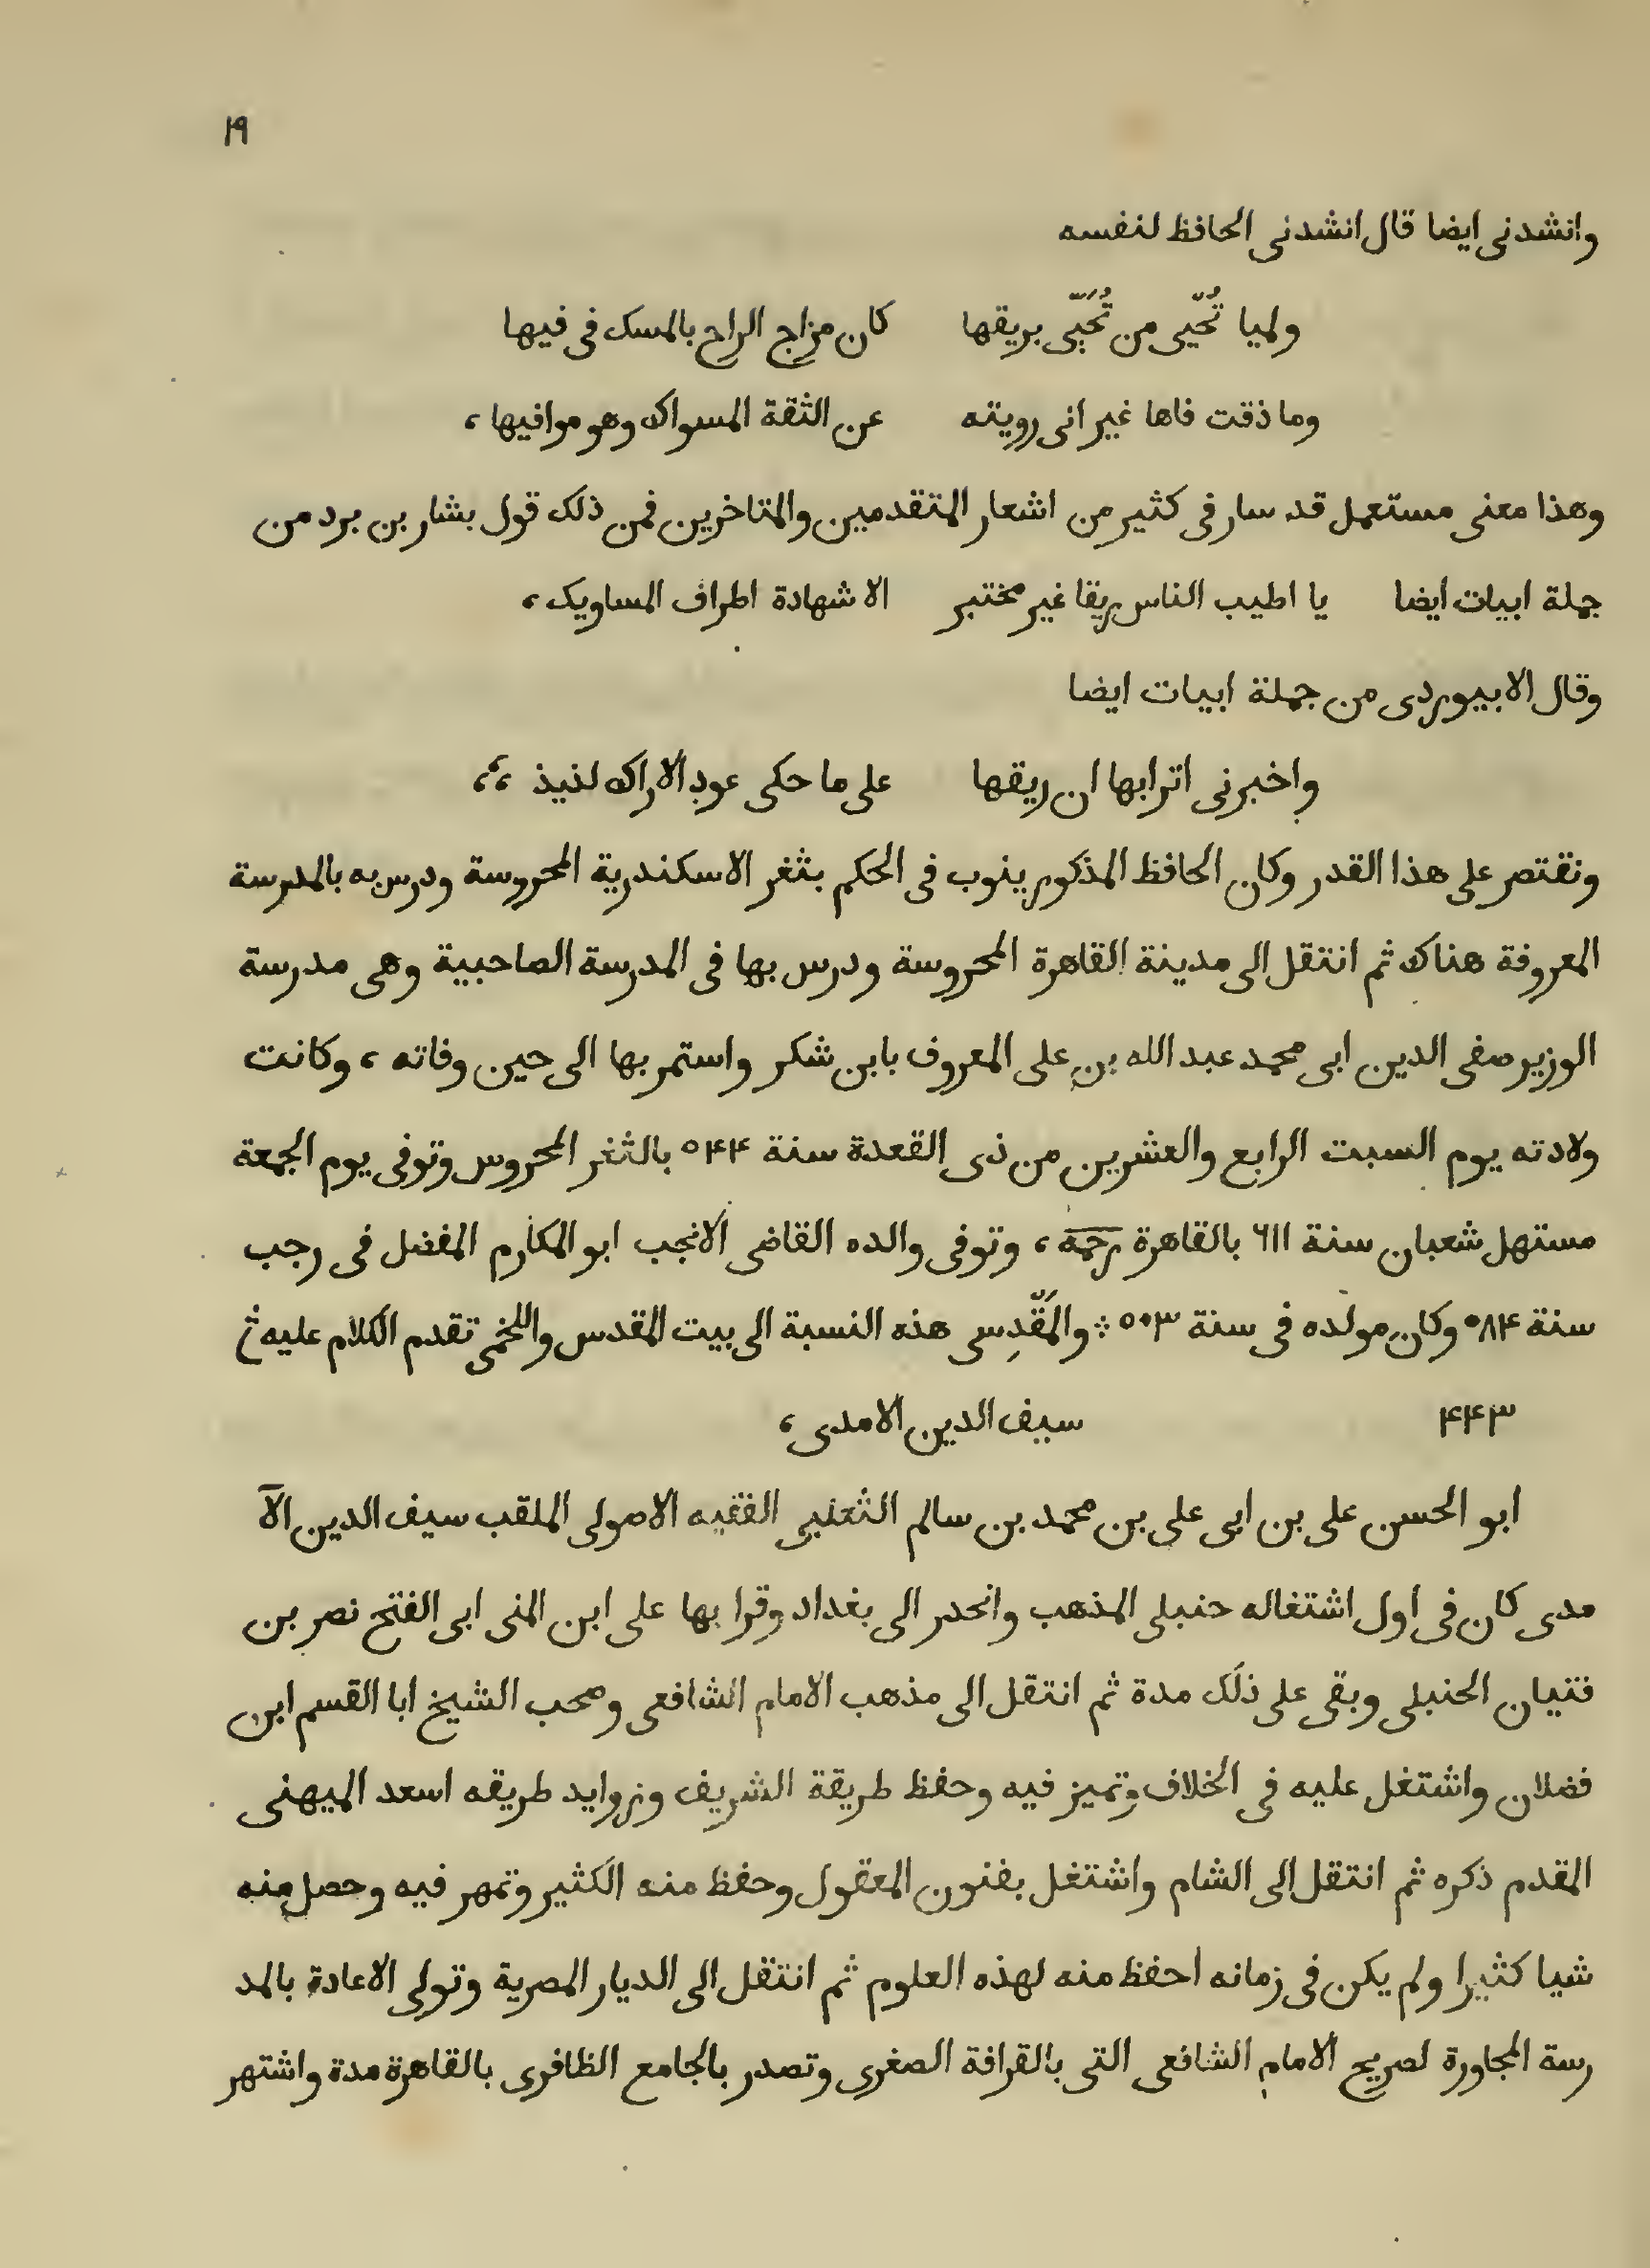 ١٩
وانشدنى ايضا قال انشدنى الحافظ لنفسه
ولميا تُحّيى من تُحَيّى بريقها كان مزاج الراح بالمسك فى فيها
وما ذقت فاها غير انى رويته عن الثقة المسواك وهو موافيها ،
وهذا معنى مستعمل قد سار فى كثير من اشعار المتقدمين والمتاخرين فمن ذلك قول بشار بن برد من
جملة ابيات ايضا يا اطيب الناس ريقا غير مختبر الا شهادة اطراف المساويك ،
وقال الابيوردى من جملة ابيات ايضا
واخبرنى اترابها ان ريقها على ما حكى عود الاراك لذيذ ،،
ونقتصر على هذا القدر وكان الحافظ المذكور ينوب فى الحكم بثغر الاسكندرية المحروسة ودرس به بالمدرسة
المعروفة هناك ثم انتقل الى مدينة القاهرة المحروسة ودرس بها فى المدرسة الصاحبية وهى مدرسة
الوزير صفى الدين ابى محمد عبد الله بن على المعروف بابن شكر واستمر بها الى حين وفاته ، وكانت
ولادته يوم السبت الرابع والعشرين من ذى القعدة سنة ٥۴۴ بالثغر المحروس وتوفى يوم الجمعة
مستهل شعبان سنة ٦١١ بالقاهرة رحمه ، وتوفى والده القاضى الانجب ابو المكارم المفضل فى رجب
سنة ٥٨۴ وكان مولده فى سنة ٥٠٣ ⁘ والمَقّدِسى هذه النسبة الى بيت المقدس واللخمى تقدم الكلام عليه ⁘
۴۴٣ سيف الدين الامدى ،
ابو الحسن على بن ابى على بن محمد بن سالم الثعلبى الفقيه الاصولى الملقب سيف الدين الآ
مدى كان فى اول اشتغاله حنبلى المذهب وانحدر الى بغداد وقرا بها على ابن المنى ابى الفتح نصر بن
فتيان الحنبلى وبقى على ذلك مدة ثم انتقل الى مذهب الامام الشافعى وصحب الشيخ ابا القسم ابن
فضلان واشتغل عليه فى الخلاف وتميز فيه وحفظ طريقة الشريف وزوايد طريقه اسعد الميهنى
المقدم ذكره ثم انتقل الى الشام واشتغل بفنون المعقول وحفظ منه الكثير وتمهر فيه وحصل منه
شيا كثيرا ولم يكن فى زمانه احفظ منه لهذه العلوم ثم انتقل الى الديار المصرية وتولى الاعادة بالمد
رسة المجاورة لصريح الامام الشافعى التى بالقرافة الصغرى وتصدر بالجامع الظافرى بالقاهرة مدة واشتهر